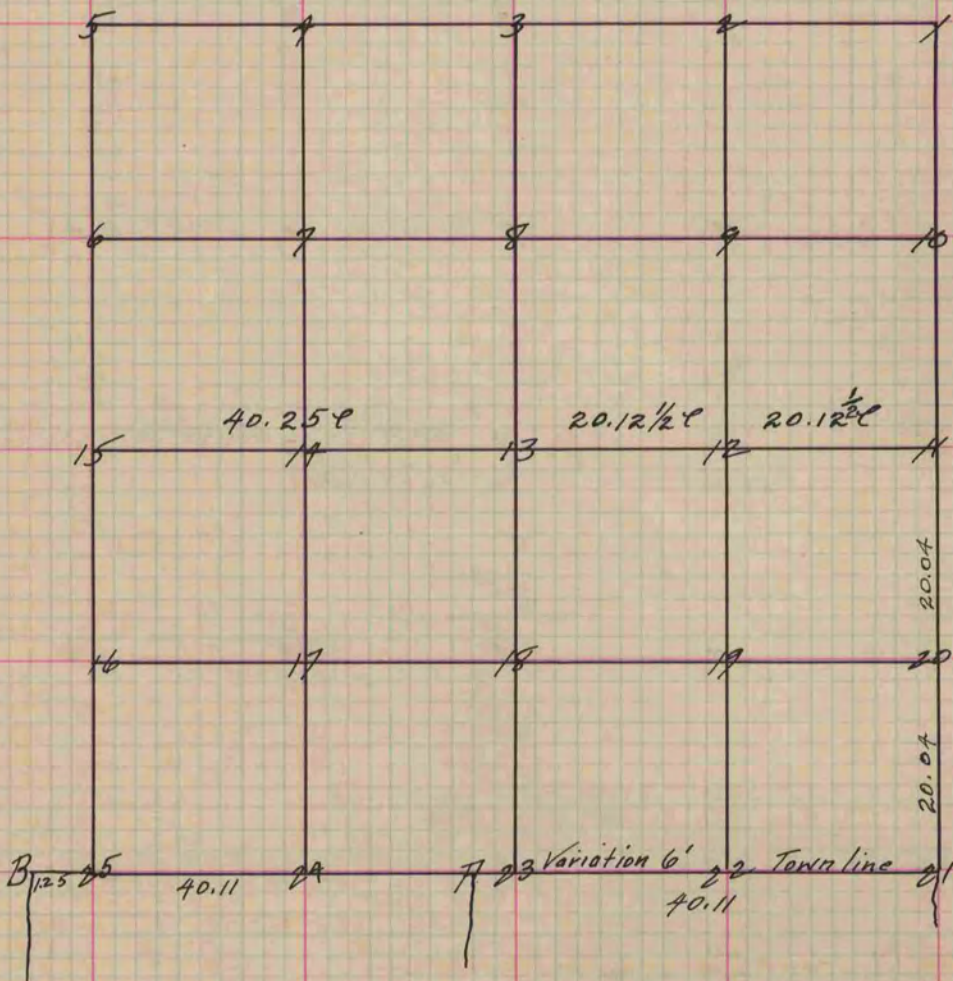 5 4 3 2 1
6 7 8 9 10
40.25 c 20.12 1/2 c 20.12 1/2 c
15 14 13 12 11
20.04
16 17 18 19 20
20.04
B 1.25 25 24 A 23 Variation 6' 22 Town line 21
40.11 40.11